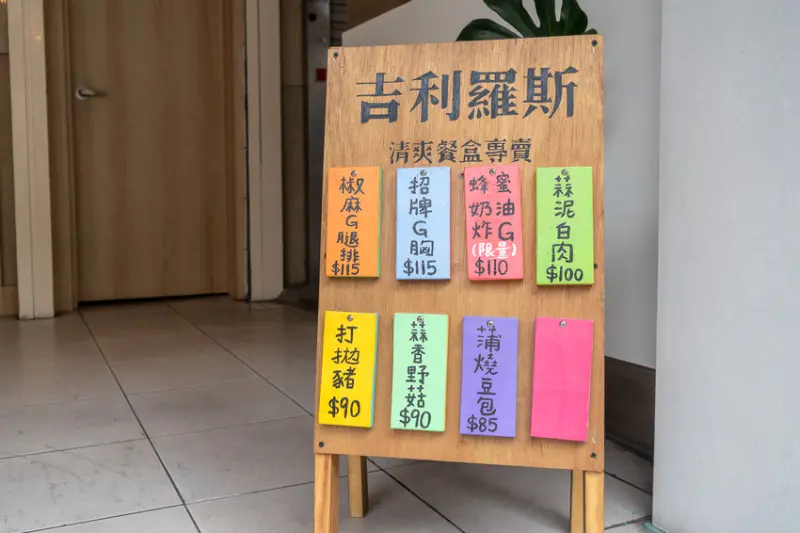 吉利羅斯
清爽餐盒專賣
椒麻G腿排
$115
招牌G胸
$115
蜂蜜
奶油
炸G
(限量)
$110
蒜泥白肉
$100
打拋豬
$90
蒜香野菇
$90
蒲燒豆包
$85